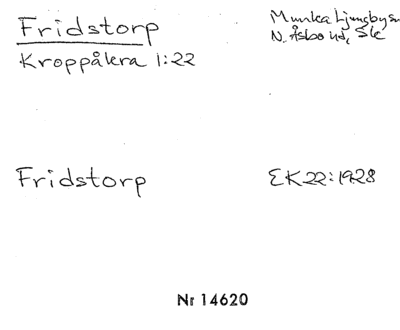 Fridstorp
Kroppåkra 1:22
Munka Ljungby sn
N. Åsbo hd, Sk
Fridstorp
EK 22:1928
Nr 14620